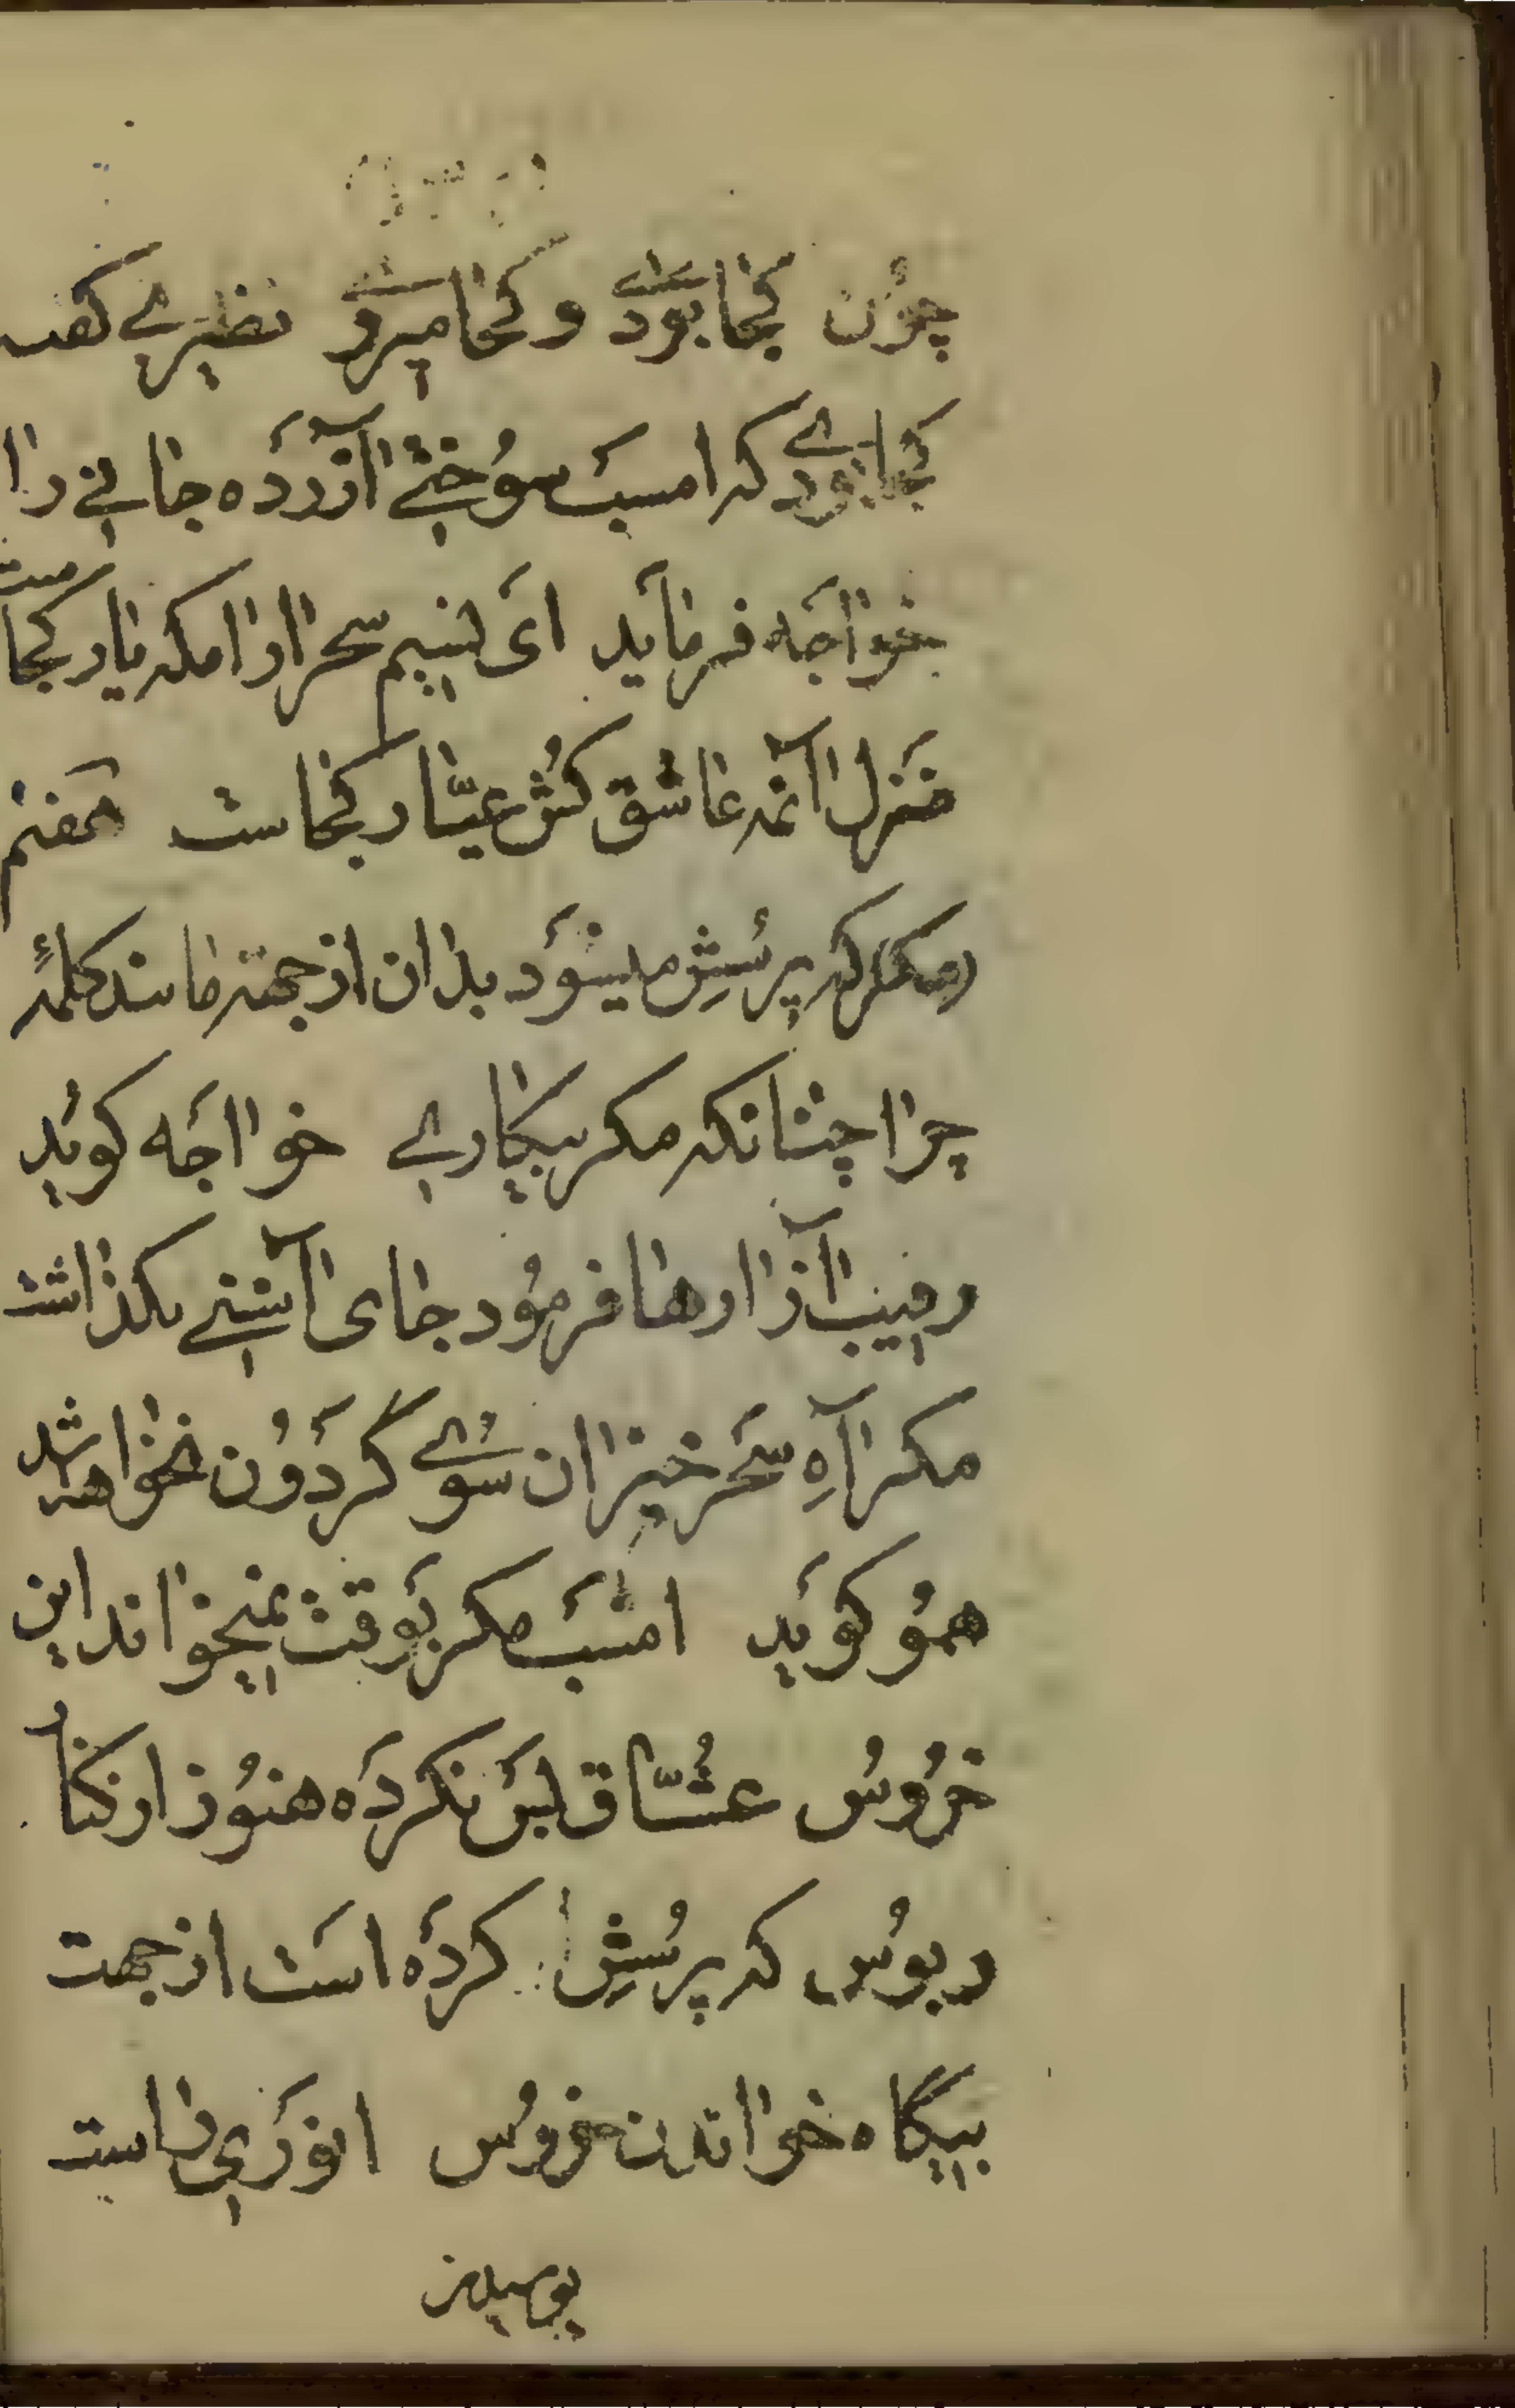 چون کجا بودی و کجا میروی نظیری گفت
کجا بودی که امسب سوختی آزرده جانی را
خواجه فرماید ای نسیم سحر ارامکه یار کجاست
منزل آنمه عاشق کش عیّار کجاست هفتم
مکر که پرسش میشود بدان از جهته مانند کلمهٔ
چرا چنانکه مکر بیکاری خواجه کوید
رقیب آزارها فرمود جای آشتی نکذاشت
مکر آهِ سحر خیزان سوی گردون نخواهد شد
همو کوید امشب مکر بوقت نمیخواند این
خروس عشّاق بس نکرده هنوز از کنار
و بوس که پرسشِ کرده است از جهت
بیگاه خواندن خروس انوری راست
پوسیدن